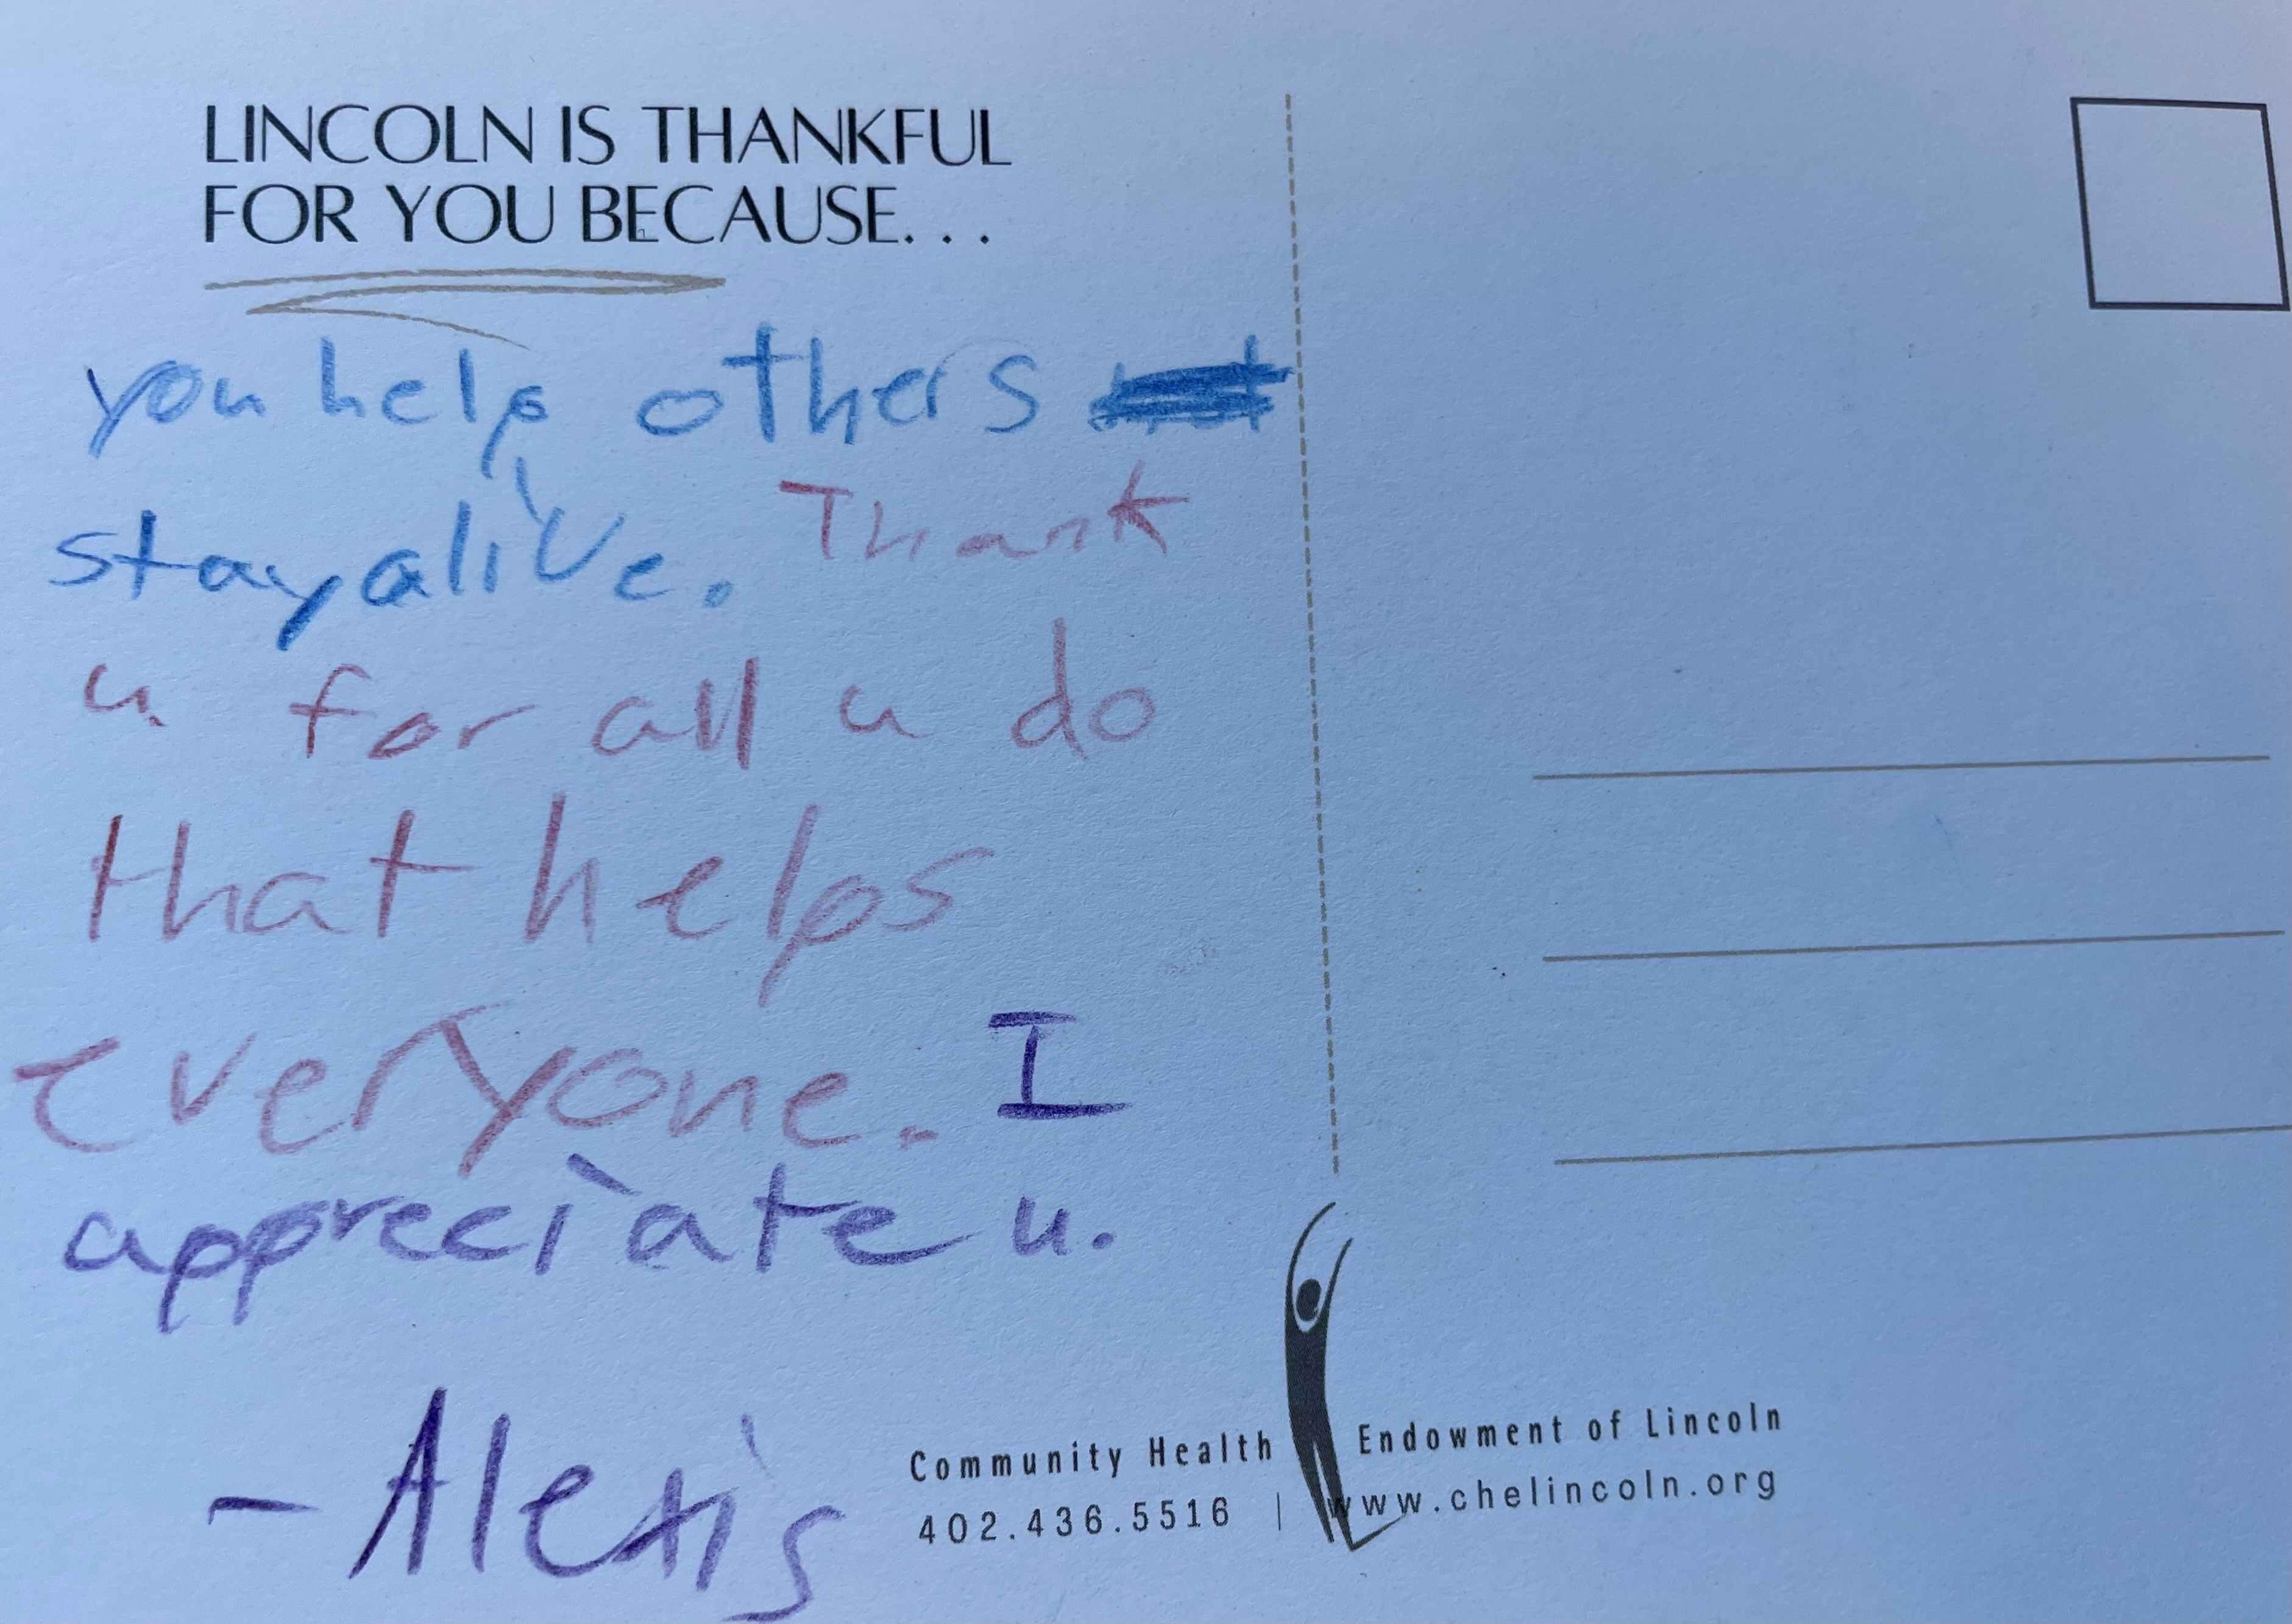 LINCOLN IS THANKFUL
FOR YOU BECAUSE...
you help others
stay alive. Thank
u for all u do
that helps
everyone. I
appreciate u.
- Alexis
Community Health Endowment of Lincoln
402.436.5516 | www.chelincoln.org